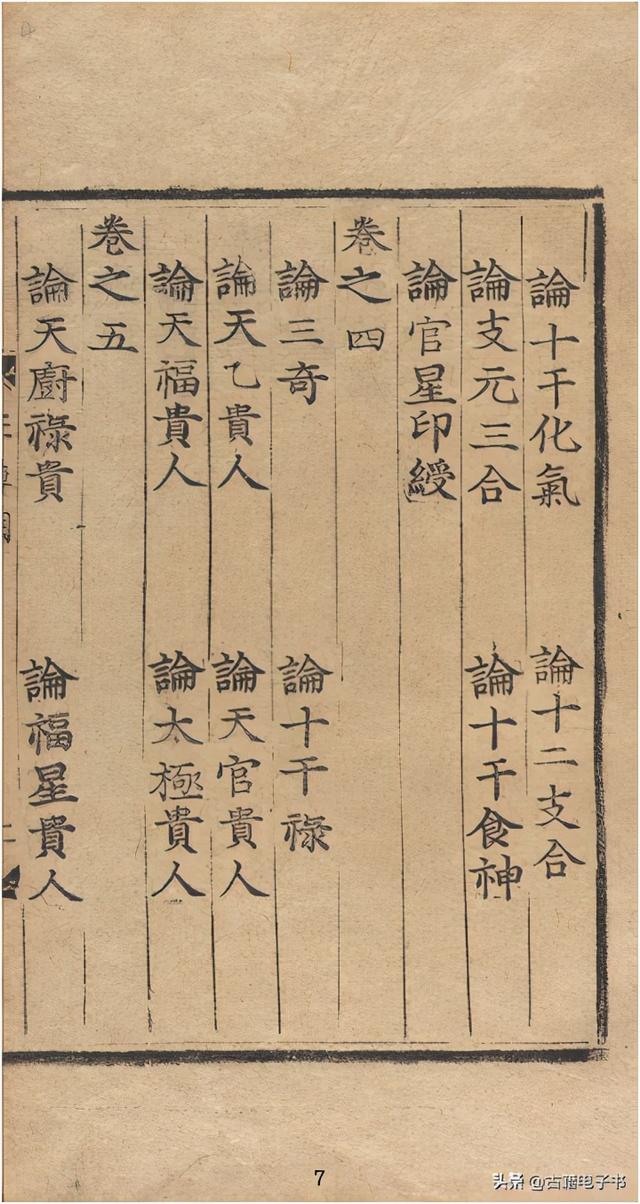 論十干化氣　論十二支合
論支元三合　論十干食神
論官星印綬
卷之四
論三奇　論十干祿
論天乙貴人　論天官貴人
論天福貴人　論太極貴人
卷之五
論天廚祿貴　論福星貴人
7
头条 @古籍电子书